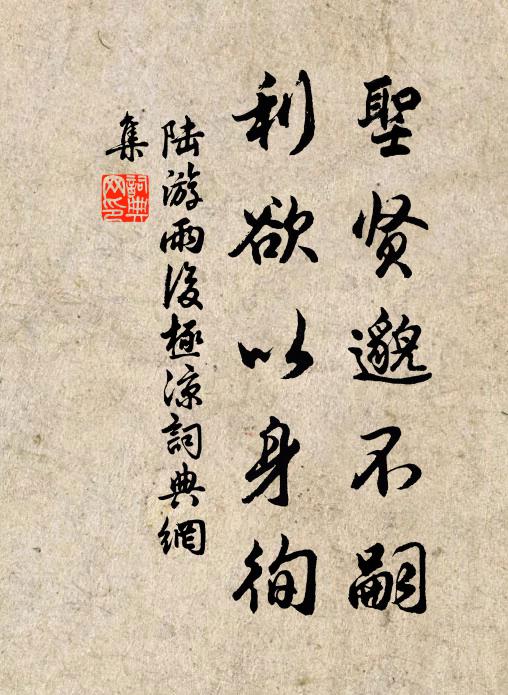 聖贤邈不嗣
利欲以身徇
陆游雨後極凉詞典網
集
詞典
网印